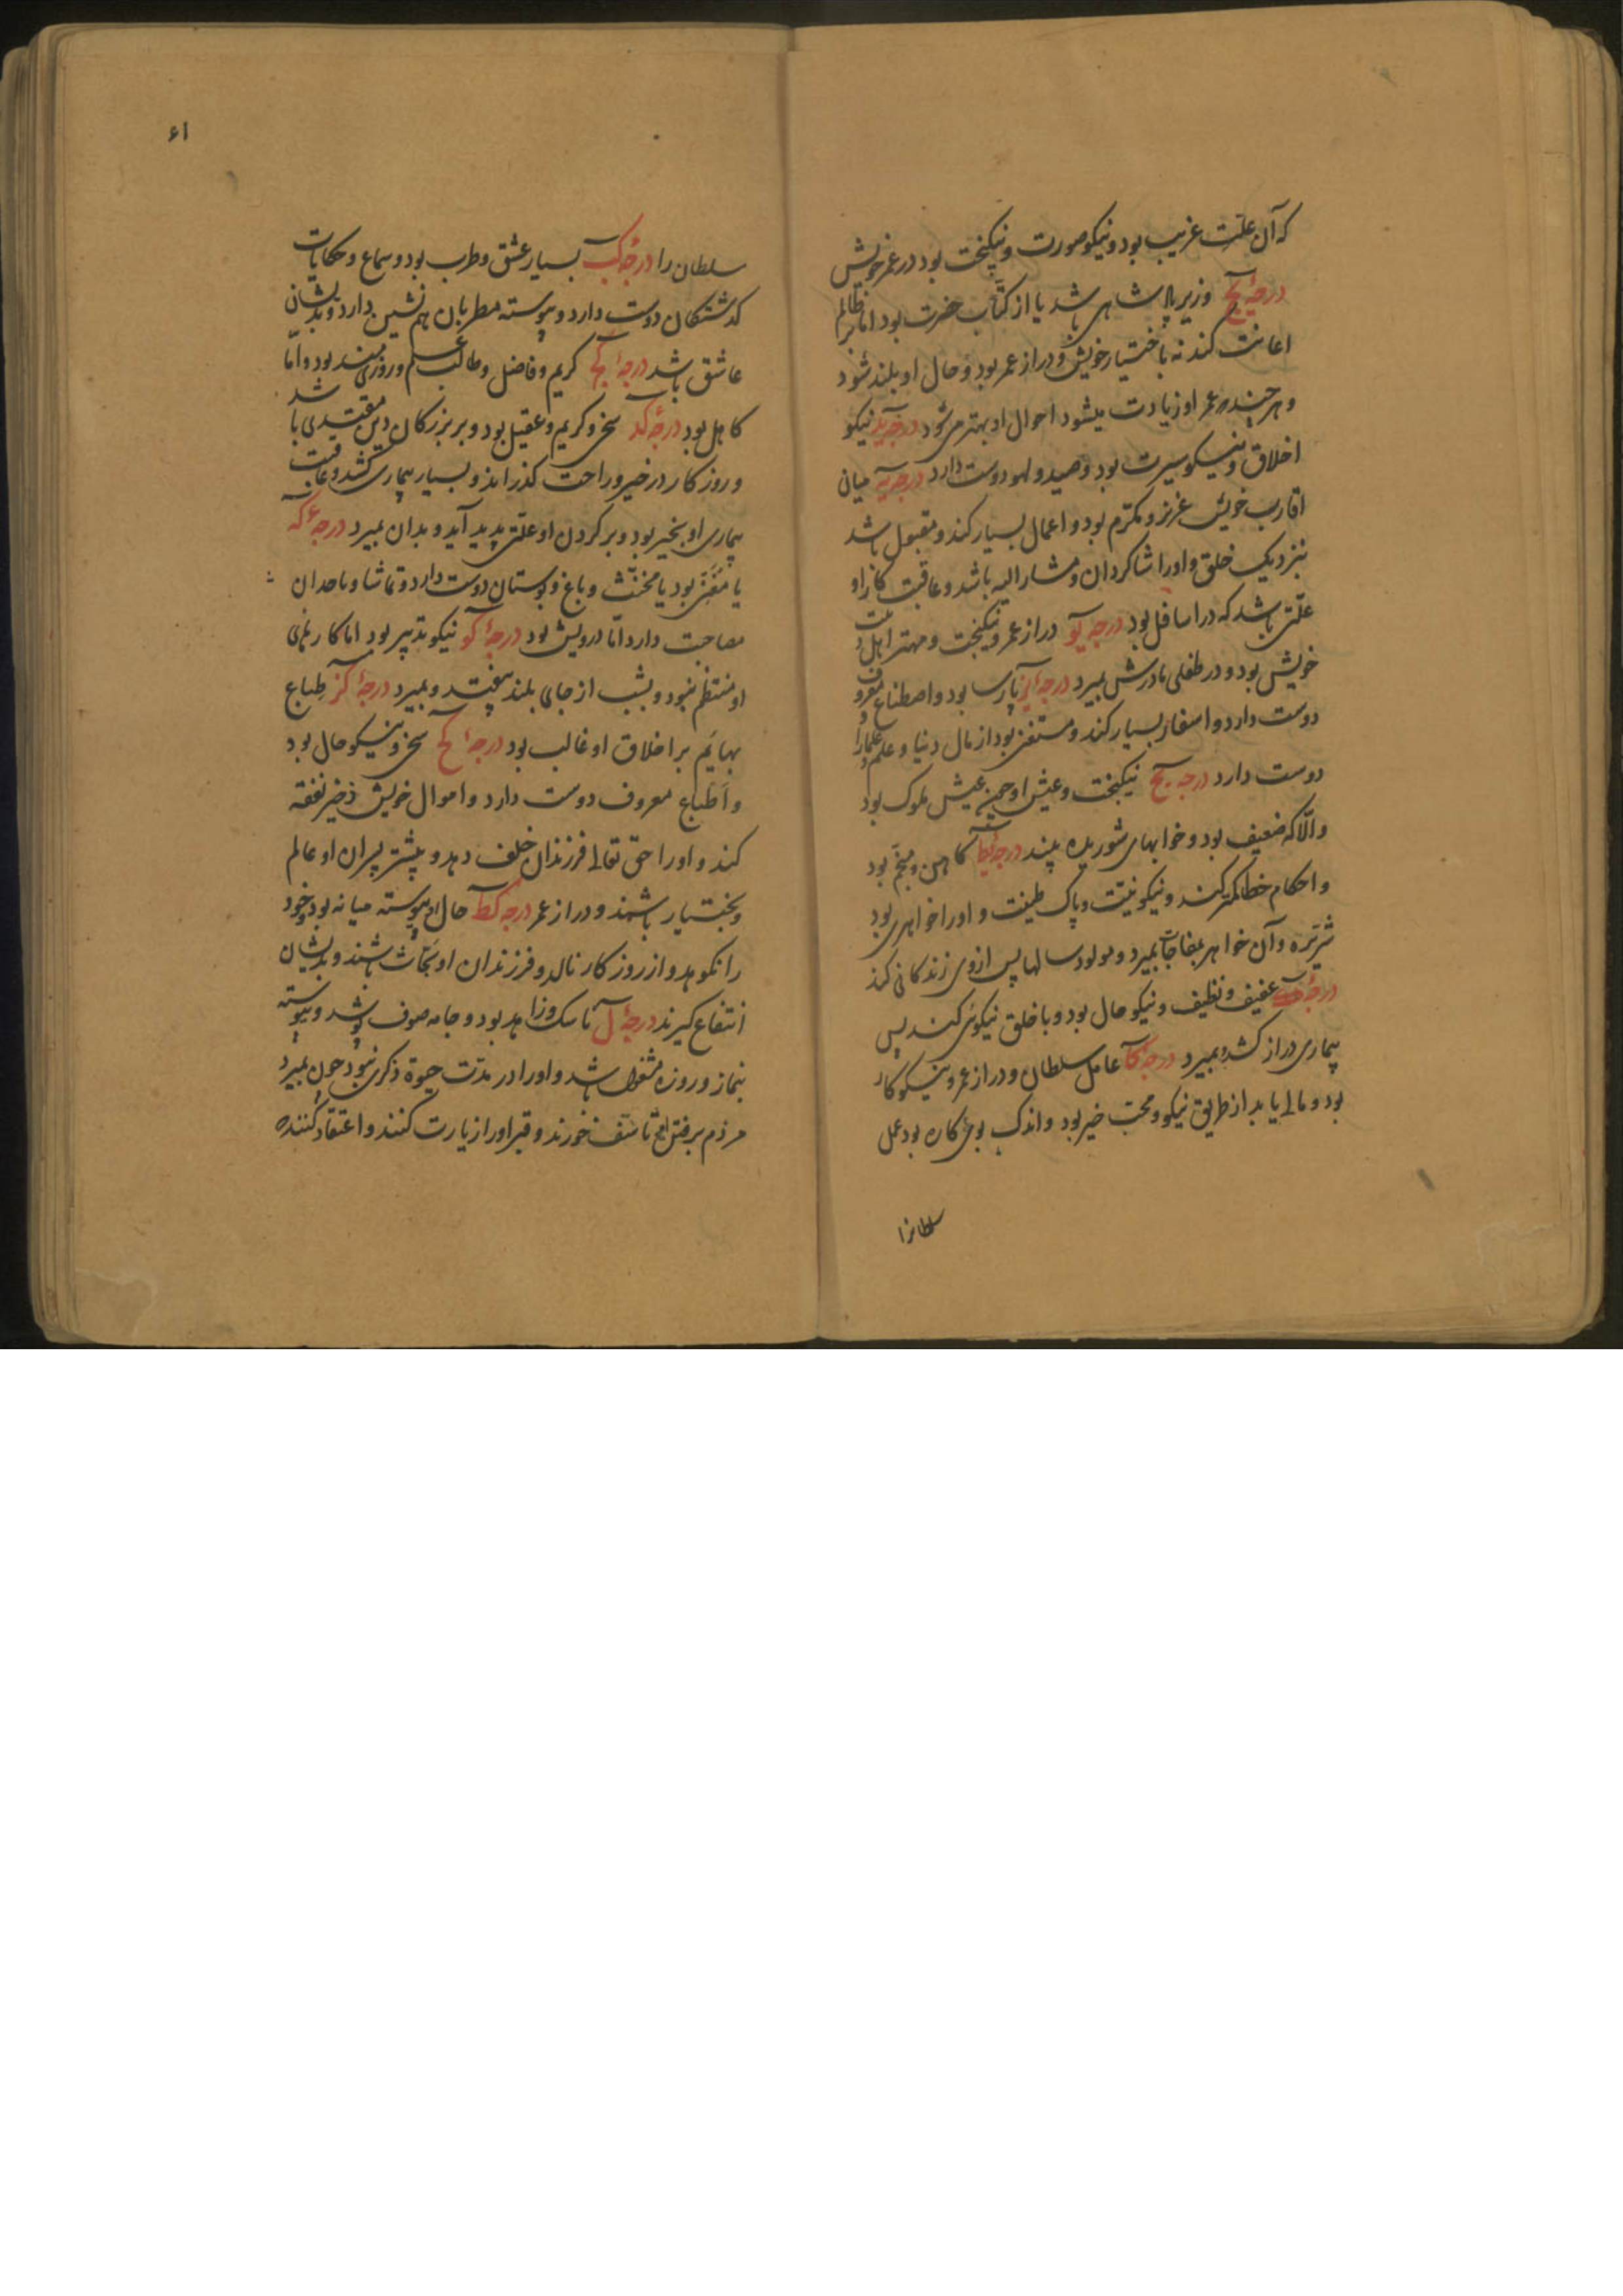 که آن علت غریب بود و نیکو صورت و نیکبخت بود در عمر خویش
درجهٔ یج وزیر پادشاهی باشد یا از کتّاب حضرت بود اما بر ظالم
اعانت کند نه باختیار خویش و دراز عمر بود و حال او بلند شود
و هر چند عمر او زیادت میشود احوال او بهتر می شود درجهٔ ید نیکو
اخلاق و نیکو سیرت بود و صید و لهو دوست دارد درجهٔ یه میان
اقارب خویش عزیز و مکرّم بود و اعمال بسیار کند و مقبول باشد
بنزدیک خلق و او را شاکردان و مشار الیه باشد و عاقبت کار او
علّتی باشد که در اسافل بود درجه یو دراز عمر و نیکبخت و مهتر اهل بیت
خویش بود و در طفلی مادرش بمیرد درجهٔ یز پارسا بود و اصطناع معروف
دوست دارد و اسفار بسیار کند و مستغنی بود از مال دنیا و علم و علما را
دوست دارد درجه یح نیکبخت و عیش او چون عیش ملوک بود
و الّا که ضعیف بود و خوابهای شوریده بیند درجهٔ یط کاهن و منجّم بود
و احکام خطا کمتر کند و نیکو نیّت و پاک طینت و او را خواهری بود
شریّره و آن خواهر بمفاجات بمیرد و مولود سالها پس از وی زندکانی کند
درجهٔ عفیف و نظیف و نیکو حال بود و با خلق نیکوئی کند پس
بیماری دراز کشد و بمیرد درجهٔ کا عامل سلطان و دراز عمر و نیکو کار
بود و مالی یابد از طریق نیکو و محبّ خیر بود و اندک بود عمل
سلطانرا
۶۱
سلطان را درجهٔ کب بسیار عشق و طرب بود و سماع و حکایات
کذشتکان دوست دارد و پیوسته مطربان هم نشین دارد و بدیشان
عاشق باشد درجهٔ کج کریم و فاضل و طالب علم و روزی‌مند بود و امّا
کاهل بود درجهٔ کد سخی و کریم و عقیل بود و بر بزرکان دین مقتدی باشد
و روزکار در خیر و راحت کذراند و بسیار بیماری کشد و عاقبت
بیماری او بخیر بود و بر کردن او علّتی پدید آید و بدان بمیرد درجهٔ که
یا مغنّی بود یا مخنّث و باغ و بوستان دوست دارد و تماشا و با حدان
مصاحبت دارد امّا درویش بود درجهٔ کو نیکو تدبیر بود اما کارهای
او منتظم نبود و بشب از جای بلند بیفتد و بمیرد درجهٔ کز طباع
بهایم بر اخلاق او غالب بود درجهٔ کح سخی و نیکو حال بود
و اطباع معروف دوست دارد و اموال خویش ذخیر نفقه
کند و او را حق تعالی فرزندان خلف دهد و بیشتر پسران او عالم
و بختیار باشند و دراز عمر درجه کط حال او پیوسته میانه بود و خود
را نکوهد و از روزکار نالد و فرزندان او نجّاث باشند و بدیشان
انتفاع کیرند درجهٔ ل ناسک و زاهد بود و جامه صوف پوشد و پیوسته
بنماز و روزه مشغول باشد و او را در مدّت حیوة ذکری نبود چون بمیرد
مردم بر فتن او تاسّف خورند و قبر او را زیارت کنند و اعتقاد کننده